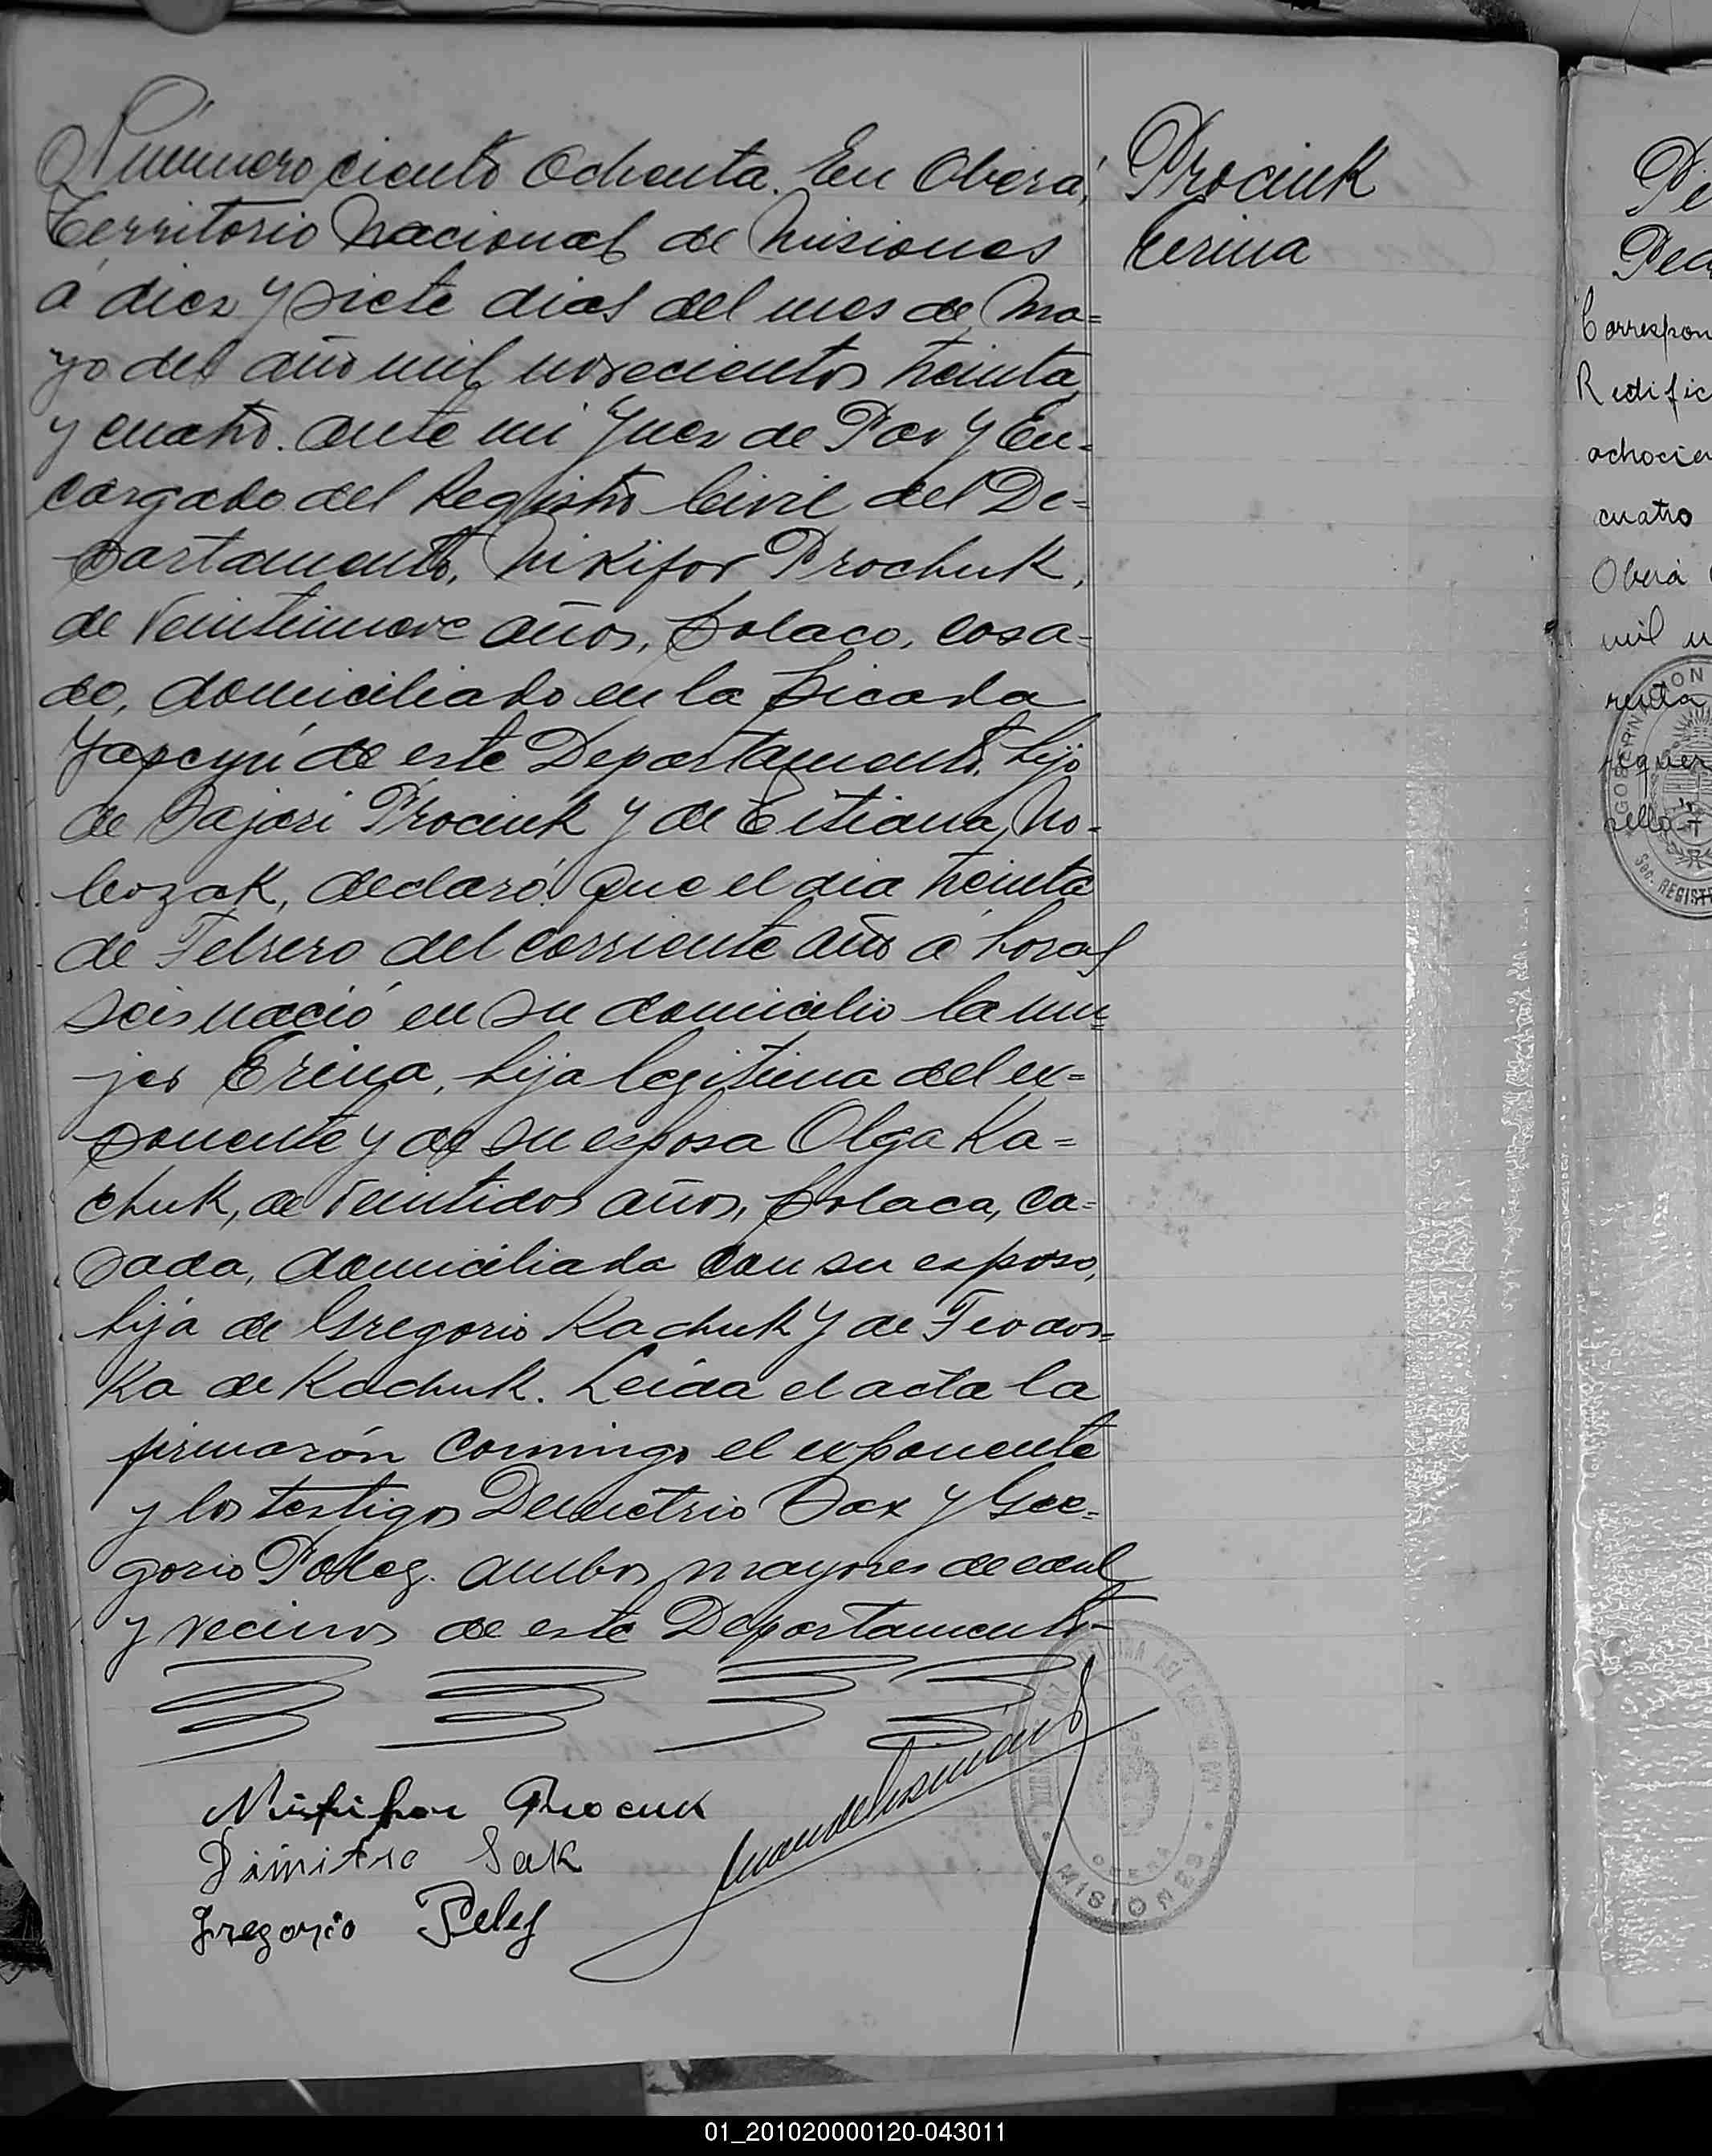 Número ciento ochenta. En Oberá,
Territorio Nacional de Misiones
á diez y siete dias del mes de Ma=
yo del año mil novecientos treinta
y cuatro. ante mi Juez de Paz y En=
cargado del Registro Civil del De=
partamento, Nikifor Prochuk,
de veintinueve años, polaco, casa=
do, domiciliado en la picada
Yapeyú de este Departamento, hijo
de Prociuk y de No=
, declaró: Que el dia treinta
de Febrero del corriente año a horas
seis nació en su domicilio la mu=
jer Erina, hija legitima del ex=
ponente y de su esposa Olga Ka=
chuk, de veintidos años, polaca, ca=
sada, domiciliada con su esposo,
hija de Gregorio Kachuk y de Teodos=
ka de Kachuk. Leida el acta la
firmarón conmigo el exponente
y los testigos Demetrio Sax y Gre=
gorio Peleg. ambos mayores de edad
y vecinos de este Departamento-
Prociuk
Erina
Dimitro Sak
Gregorio
MISIONES
OBERA
Pe
Correspon
Redific
achocien
cuatro
Oberá
mil
sello
REGIST